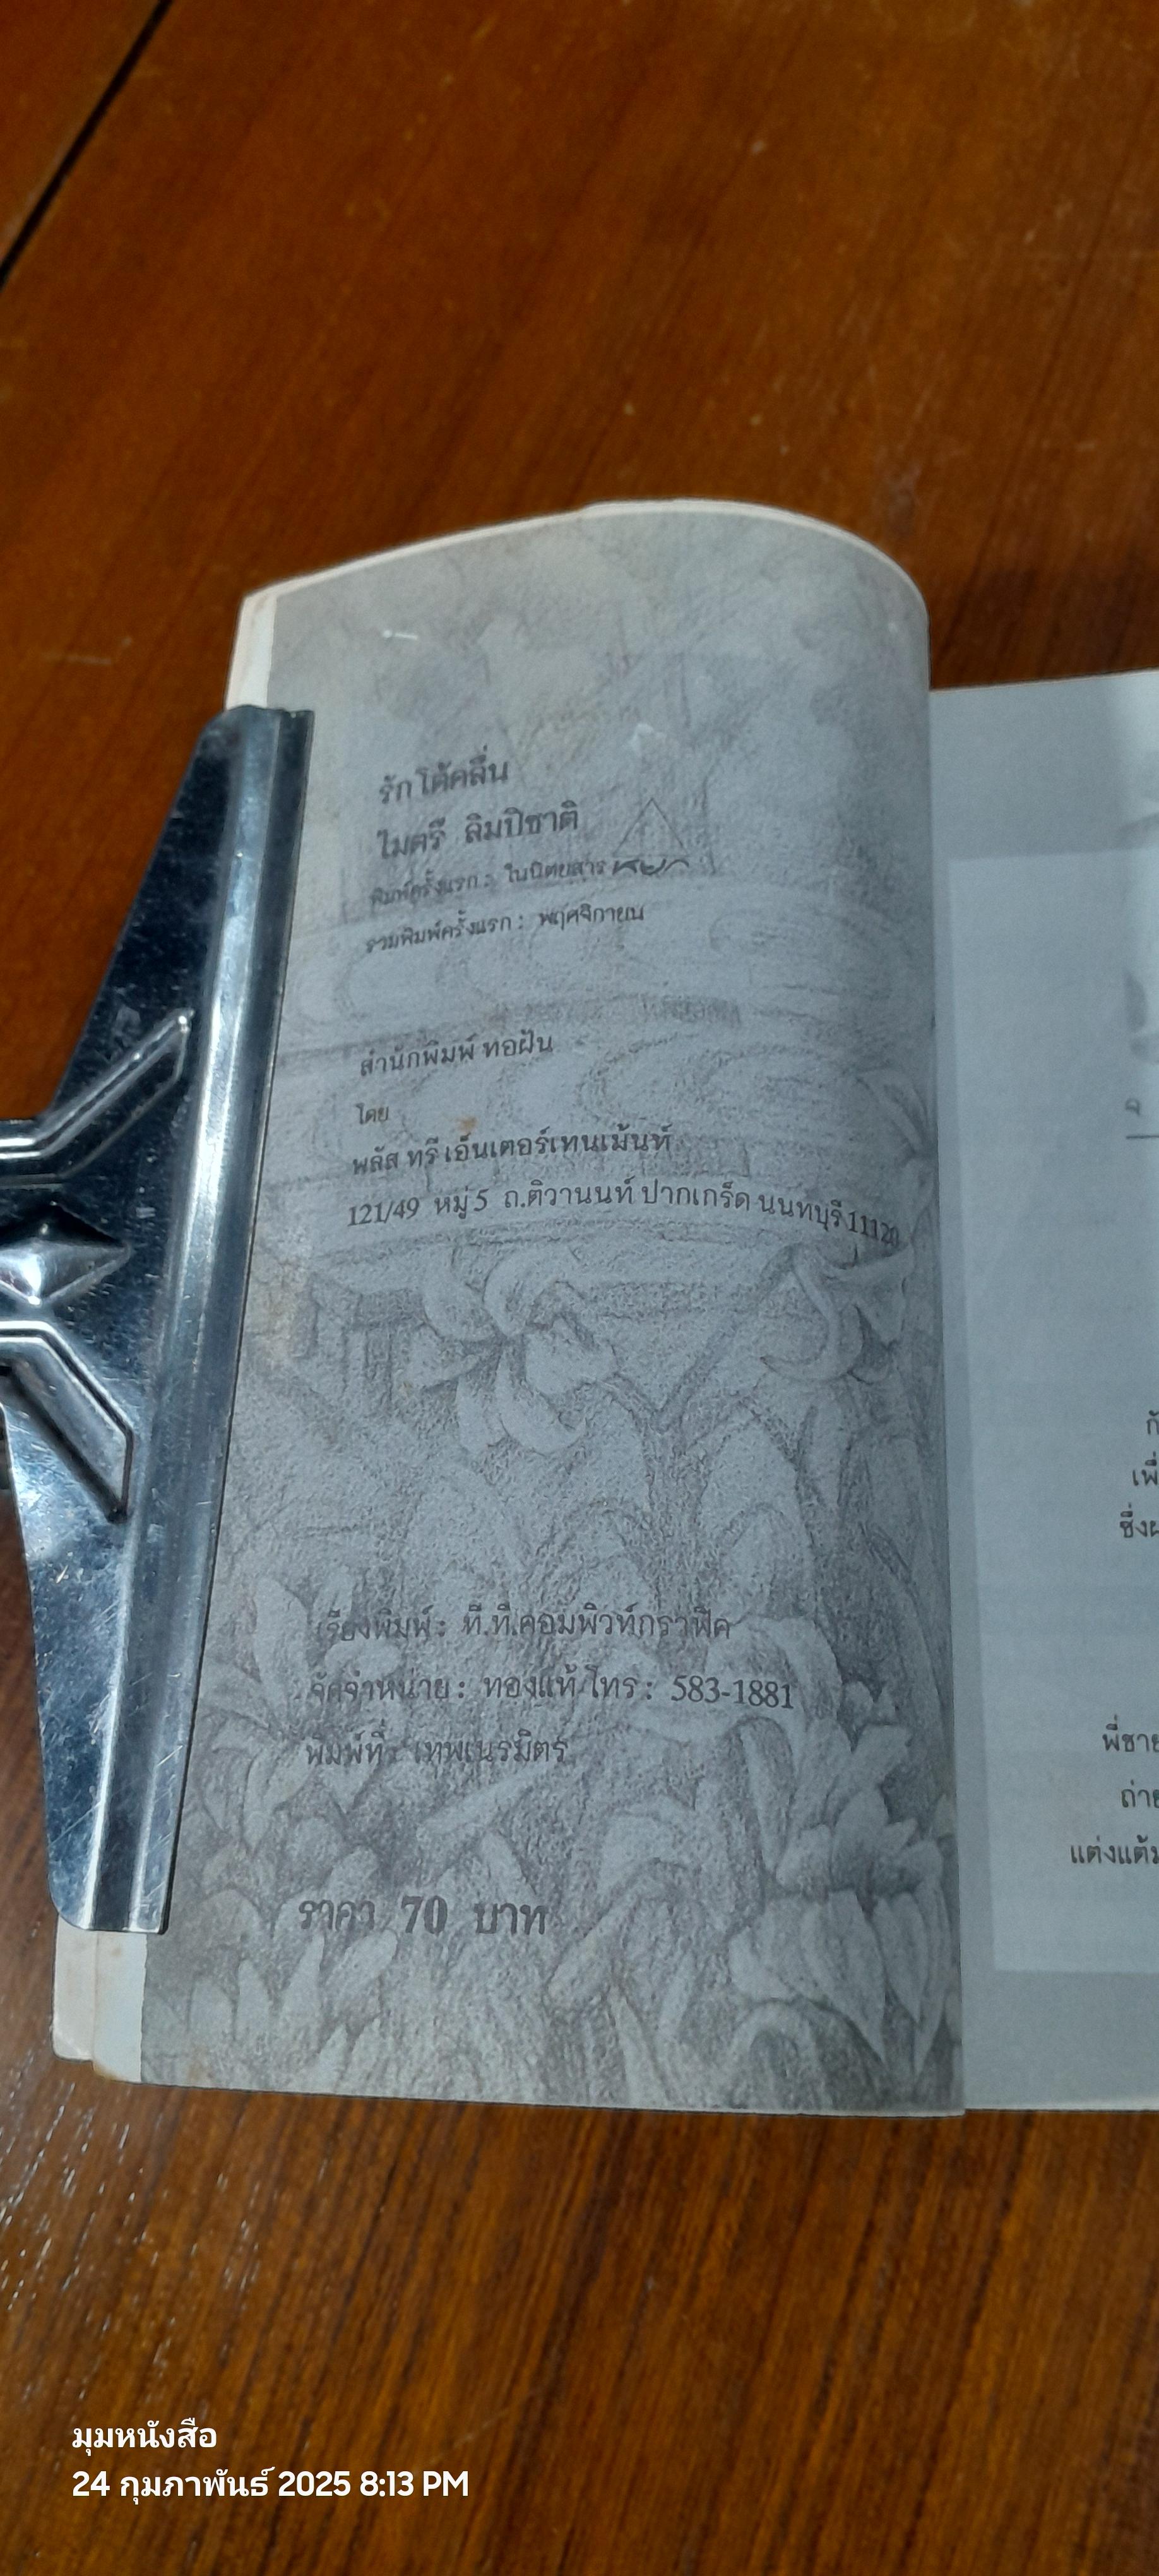 รักโต้คลื่น
ไมตรี ลิมปิชาติ
พิมพ์ครั้งแรก : ในนิตยสาร
รวมพิมพ์ครั้งแรก : พฤศจิกายน
สำนักพิมพ์ ทอฝัน
โดย
พลัส ทรี เอ็นเตอร์เทนเม้นท์
121/49 หมู่ 5 ถ.ติวานนท์ ปากเกร็ด นนทบุรี 11120
เรียงพิมพ์ : ที.ที.คอมพิวท์กราฟิค
จัดจำหน่าย : ทองแท้ โทร : 583-1881
พิมพ์ที่ : เทพเนรมิตร
ราคา 70 บาท
พี่ชาย
แต่งแต้ม
มุมหนังสือ
24 กุมภาพันธ์ 2025 8:13 PM